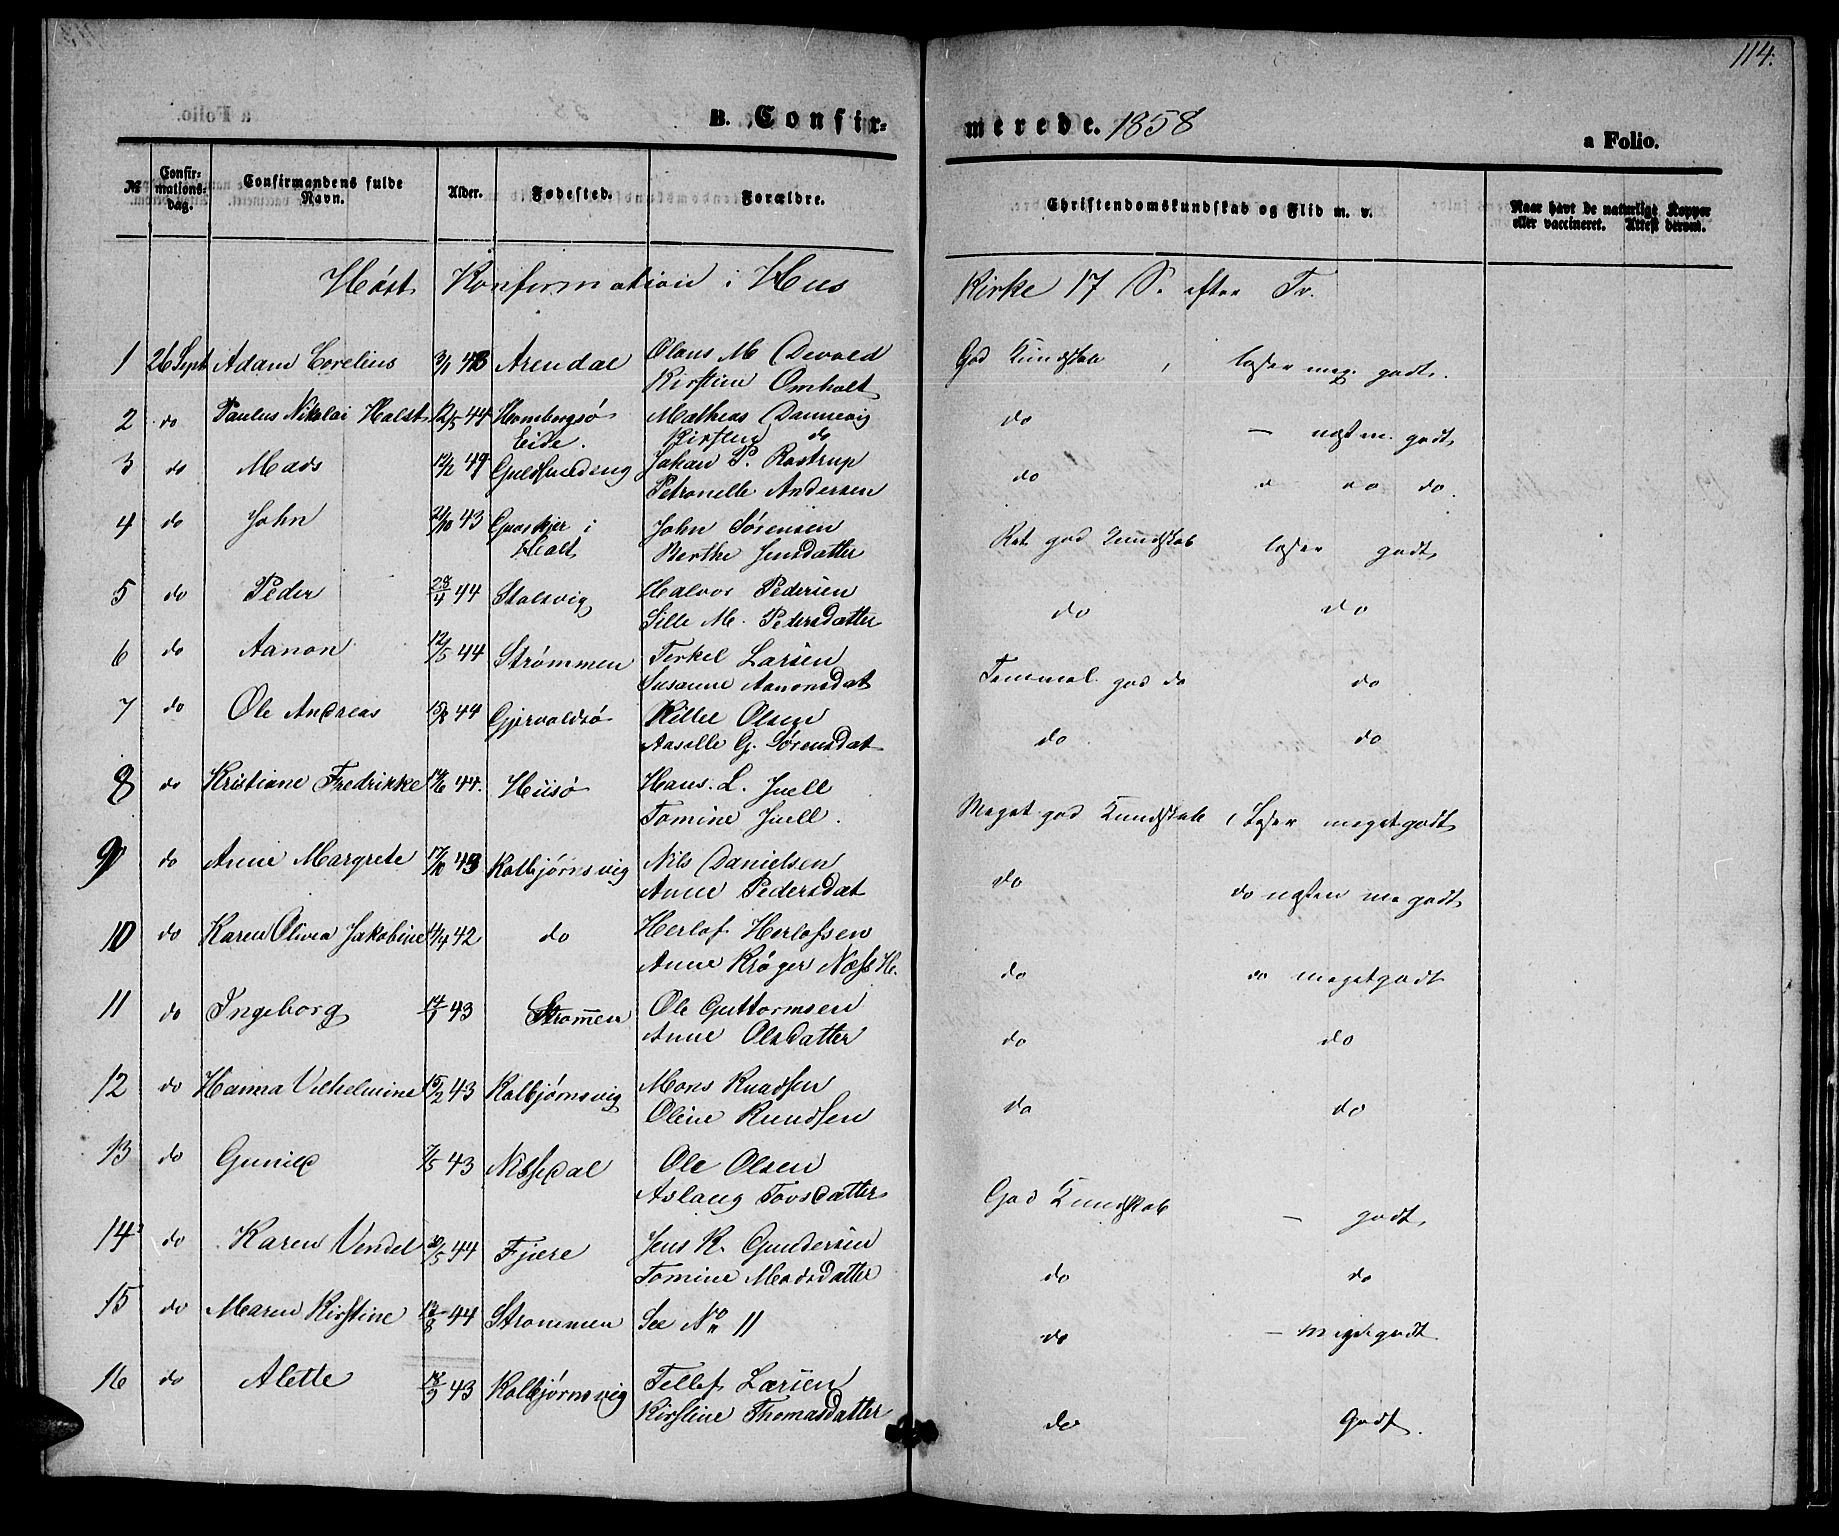 114.
B. Confir=
merede. 1858
a Folio.
№
Confir-
mations-
dag.
Confirmandens fulde
Navn.
Alder.
Fødested.
Forældre.
Christendomskundskab og Flid m. v.
Naar havt de naturlige Kopper
eller vaccineret. Attest derom.
Høst Konfirmation i Hus
Kirke 17 S. efter Tr.
1 26 Sept Adam Corelius 3/1 43 Arendal Olaus M Devold
Kirstine Omholt
God Kundskab, læser meg. godt.
2 do Paulus Nikolai Halst 12/5 44 Hombergsø
Eide.
Mathias Dannevig
Kirstine do
do — næsten godt
3 do Mads 12/2 44 Guldsmedeng Johan P. Rostrup
Petronelle Andersen
do do do
4 do John 21/10 43 i
Holt
John Sørensen
Berthe Jensdatter
Ret god Kundskab læser godt
5 do Peder 28/4 44 Stølsvig Halvor Pedersen
Sille M. Pedersdatter
do do
6 do Aanon 12/5 44 Strømmen Terkel Larsen
Susanne Aanonsdat
Temmel. god do do
7 do Ole Andreas 15/8 44 Gjervoldsø Kittel Olsen
Aaselle G. Sørensdat
do do
8 do Kristiane Fredrikke 14/6 44. Hiisø Hans. L. Juell
Tomine Juell.
Meget god Kundskab, Læser meget godt
9 do Anne Margrete 17/10 43 Kolbjørnsvig Nils Danielsen
Anne Pedersdat
do do næsten me godt
10 do Karen Olivia Jakobine 11/4 42 do Herlof Herlofsen
Anne Krøger Næss H.
do do meget godt
11 do Ingeborg 14/1 43 Strommen Ole Guttormsen
Anne Olsdatter
do do
12 do Hanna Vilhelmine 15/2 43 Kolbjørnsvig Mons Knudsen
Oline Knudsen
do do
13 do Gunild 7/5 43 Nissedal Ole Olsen
Aslaug Tovsdatter
God Kundskab — godt
14 do Karen Vendel 30/5 44 Fjære Jens K. Gundersen
Tomine Madsdatter
do do
15 do Maren Kirstine 12/8 44 Strommen See No 11
do — megetgodt
16 do Alette 18/9 43 Kolbjørnsvig Tellef Larsen
Kirstine Thomasdatter
do Godt.